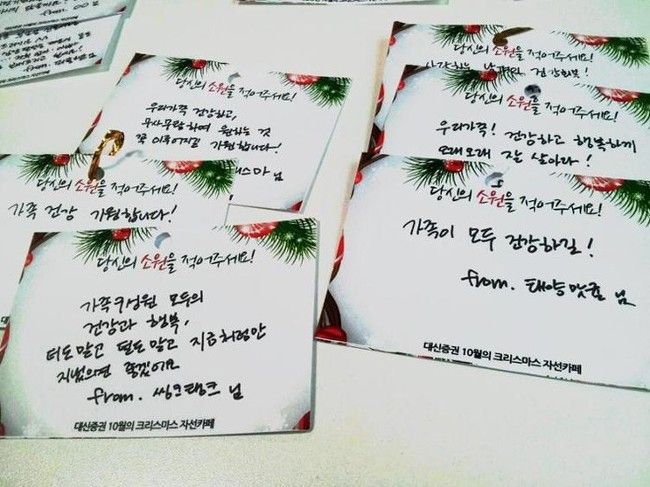 당신의 소원을 적어주세요!
우리가족 건강하고,
무사무탈하며 원하는 것
꼭 이루어지길 기원합니다!
당신의 소원을 적어주세요!
가족 건강 기원합니다!
당신의 소원을 적어주세요!
가족구성원 모두의
건강과 행복,
더도말고 덜도말고 지금처럼만
지냈으면 좋겠어요
from. 씽크탱크 님
대신증권 10월의 크리스마스 자선카페
당신의 소원을 적어주세요!
당신의 소원을 적어주세요!
우리가족! 건강하고 행복하게
오래오래 잘 살아라!
당신의 소원을 적어주세요!
가족이 모두 건강하길!
from. 태양맞춤 님
대신증권 10월의 크리스마스 자선카페